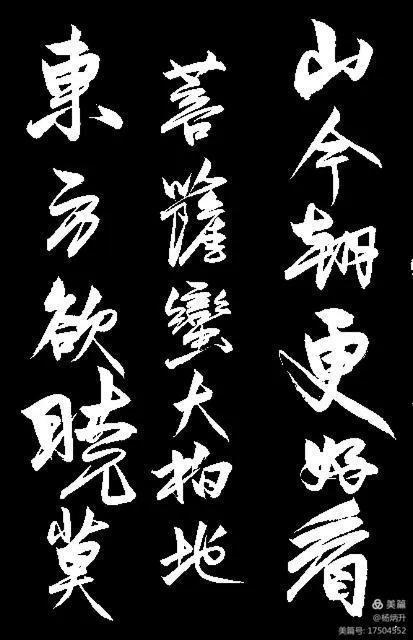 山今朝更好看
菩薩蠻大柏地
東方欲曉莫
美篇
@杨炳升
美篇号: